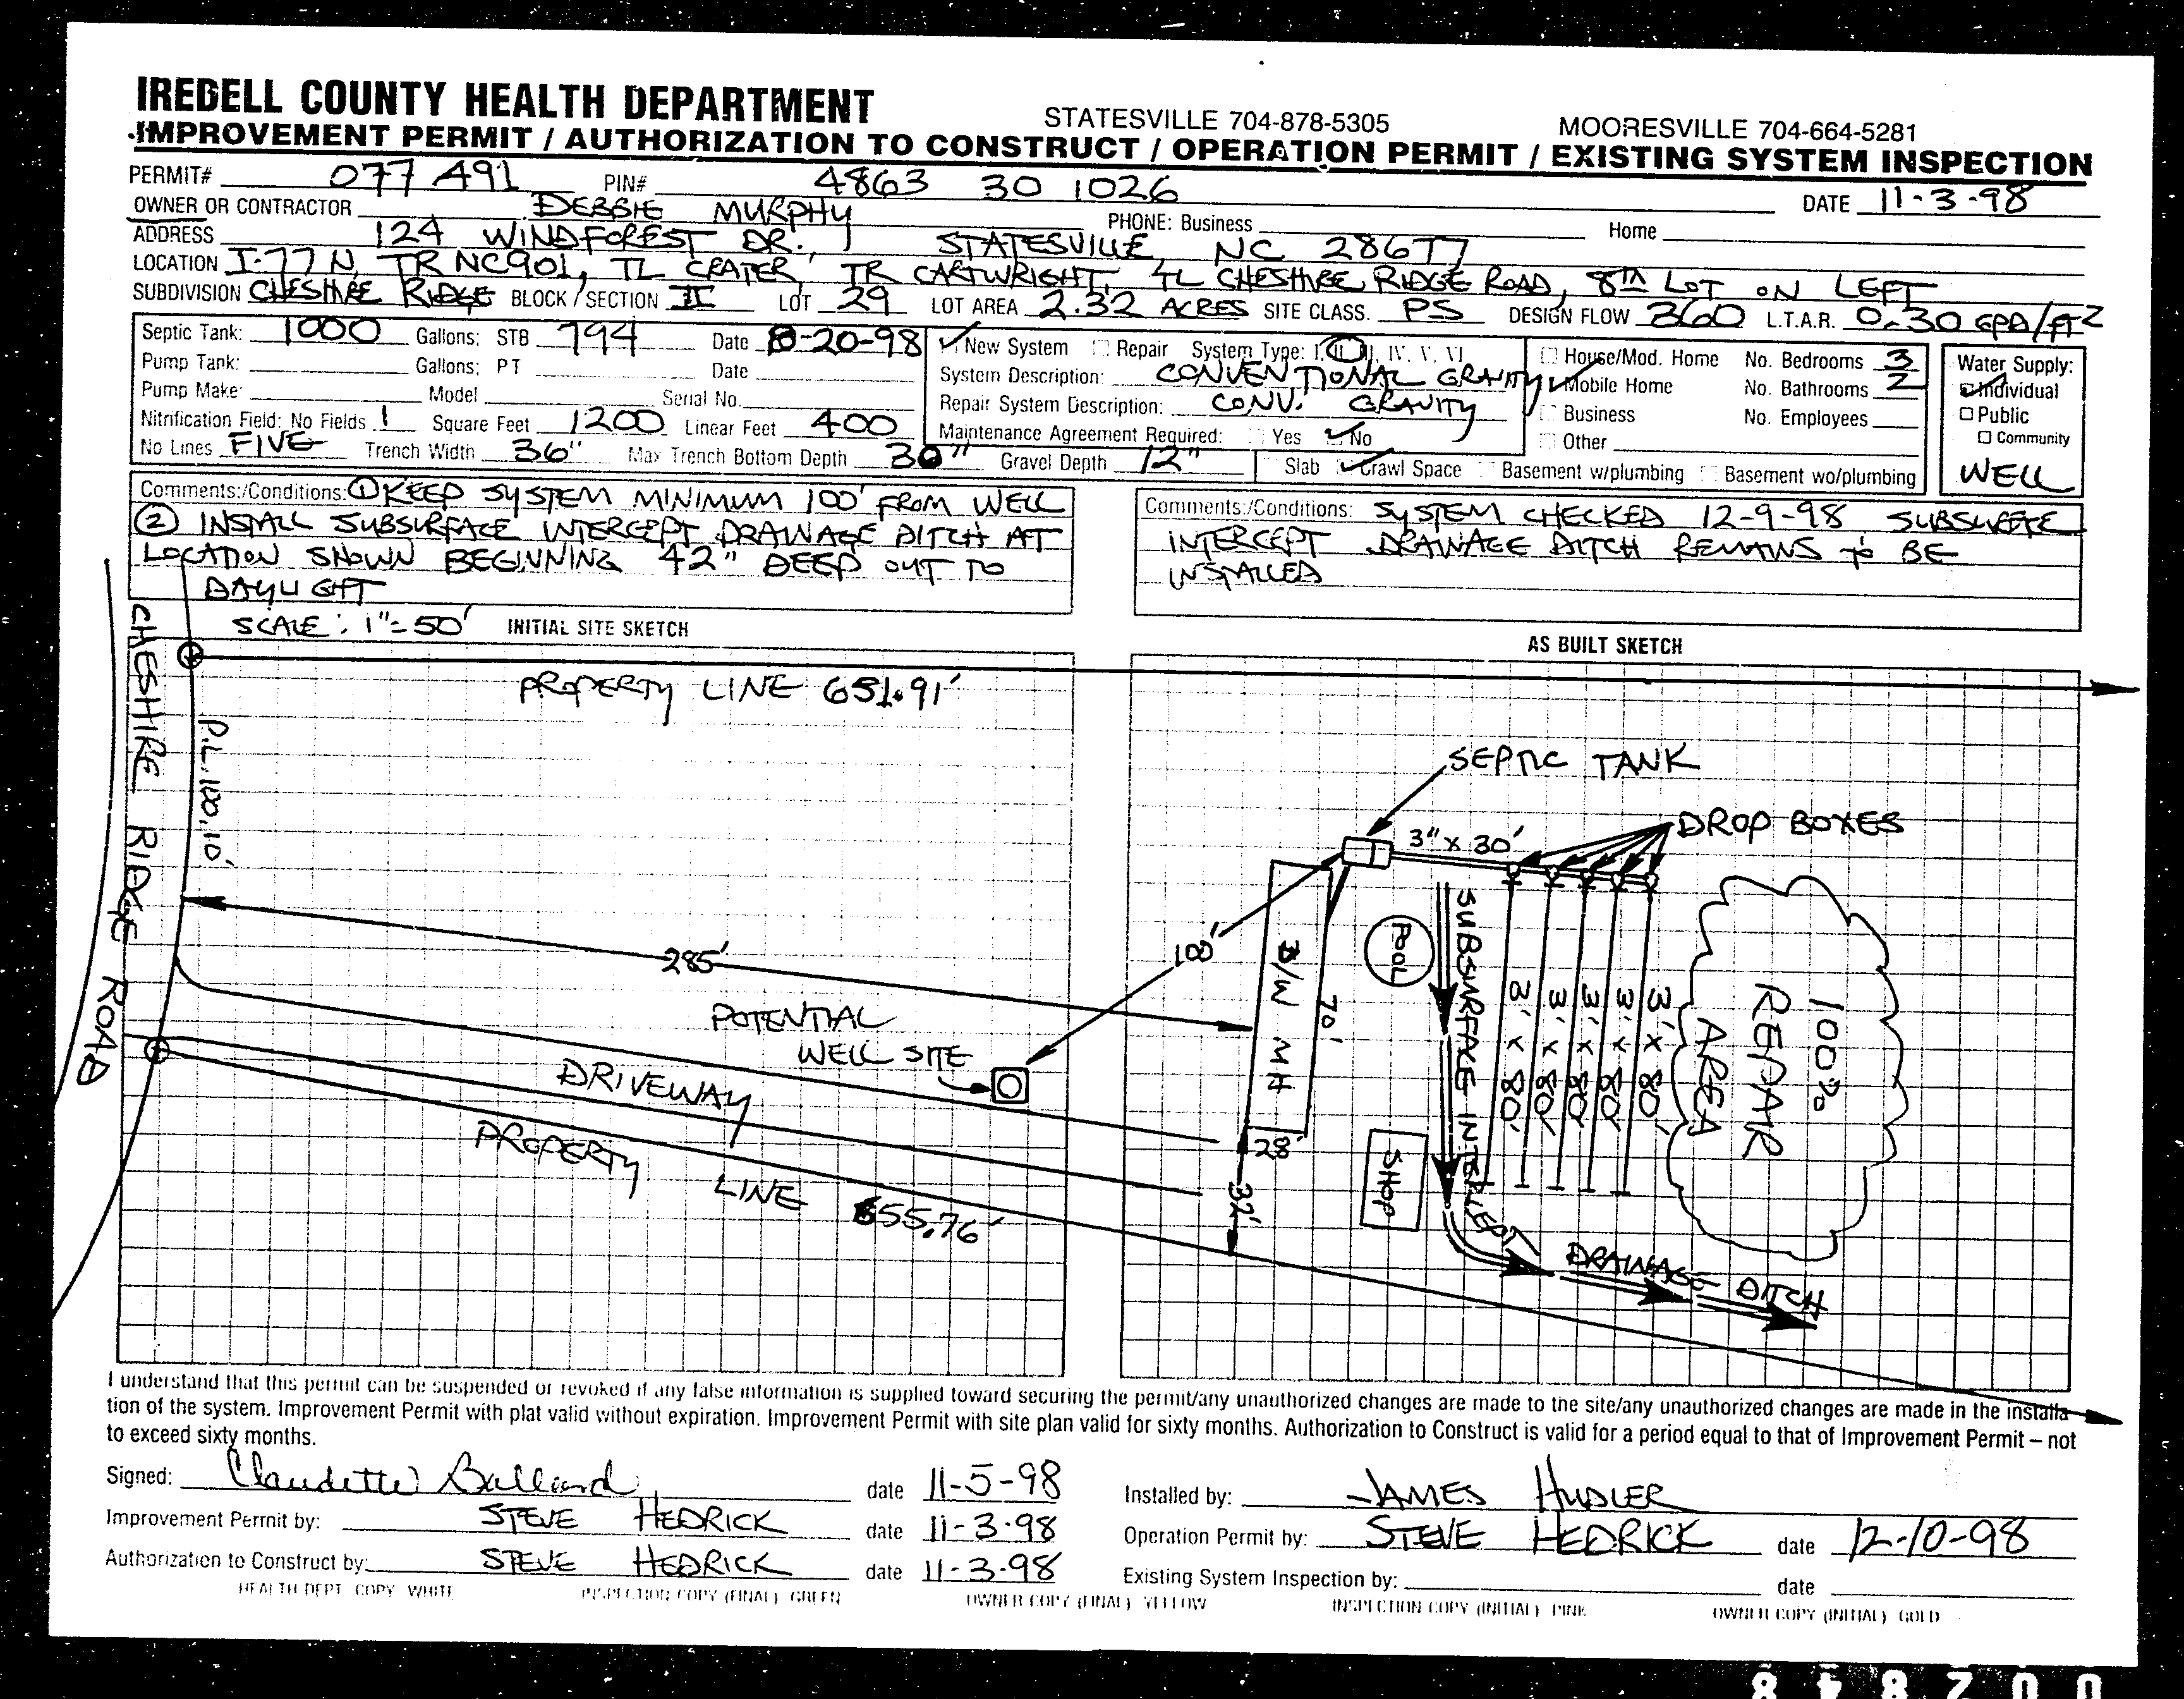 IREDELL COUNTY HEALTH DEPARTMENT STATESVILLE 704-878-5305 MOORESVILLE 704-664-5281
IMPROVEMENT PERMIT / AUTHORIZATION TO CONSTRUCT / OPERATION PERMIT / EXISTING SYSTEM INSPECTION
PERMIT# 077 491 PIN# 4863 30 1026 DATE 11-3-98
OWNER OR CONTRACTOR DEBBIE MURPHY PHONE: Business Home
ADDRESS 124 WINDFOREST DR., STATESVILLE, NC 28677
LOCATION I-77 N, TR NC901, TL CRATER, TR CARTWRIGHT, TL CHESHIRE RIDGE ROAD, 8TH LOT ON LEFT
SUBDIVISION CHESHIRE RIDGE BLOCK / SECTION II LOT 29 LOT AREA 2.32 ACRES SITE CLASS. PS DESIGN FLOW 360 L.T.A.R. 0.30 GPD/FT2
Septic Tank: 1000 Gallons; STB 794 Date 8-20-98
Pump Tank: Gallons; PT Date
Pump Make: Model Serial No.
Nitrification Field: No Fields 1 Square Feet 1200 Linear Feet 400
No Lines FIVE Trench Width 36" Max Trench Bottom Depth 30" Gravel Depth 12"
New System Repair System Type: I, II, III, IV, V, VI
System Description: CONVENTIONAL GRAVITY
Repair System Description: CONV. GRAVITY
Maintenance Agreement Required: Yes No
House/Mod. Home No. Bedrooms 3
Mobile Home No. Bathrooms 2
Business No. Employees
Other
Slab Crawl Space Basement w/plumbing Basement wo/plumbing
Water Supply:
Individual
Public
Community
WELL
Comments:/Conditions: ① KEEP SYSTEM MINIMUM 100' FROM WELL
② INSTALL SUBSURFACE INTERCEPT DRAINAGE DITCH AT
LOCATION SHOWN BEGINNING 42" DEEP OUT TO
DAYLIGHT
Comments:/Conditions: SYSTEM CHECKED 12-9-98 SUBSURFACE
INTERCEPT DRAINAGE DITCH REMAINS TO BE
INSTALLED
SCALE: 1"=50' INITIAL SITE SKETCH
AS BUILT SKETCH
CHESHIRE RIDGE ROAD
PROPERTY LINE 651.91'
P.L. 100.10'
285'
POTENTIAL
WELL SITE
DRIVEWAY
PROPERTY LINE 655.76'
SEPTIC TANK
3" x 30'
DROP BOXES
100'
D/W MH
70'
28'
32'
POOL
SHOP
SUBSURFACE INTERCEPT
DRAINAGE DITCH
3' x 80'
3' x 80'
3' x 80'
3' x 80'
3' x 80'
100%
REPAIR
AREA
I understand that this permit can be suspended or revoked if any false information is supplied toward securing the permit/any unauthorized changes are made to the site/any unauthorized changes are made in the installa
tion of the system. Improvement Permit with plat valid without expiration. Improvement Permit with site plan valid for sixty months. Authorization to Construct is valid for a period equal to that of Improvement Permit – not
to exceed sixty months.
Signed: Claudette Ballard date 11-5-98
Improvement Permit by: STEVE HEDRICK date 11-3-98
Authorization to Construct by: STEVE HEDRICK date 11-3-98
Installed by: JAMES HUDLER
Operation Permit by: STEVE HEDRICK date 12-10-98
Existing System Inspection by: date
HEALTH DEPT COPY WHITE INSPECTION COPY (FINAL) GREEN OWNER COPY (FINAL) YELLOW INSPECTION COPY (INITIAL) PINK OWNER COPY (INITIAL) GOLD